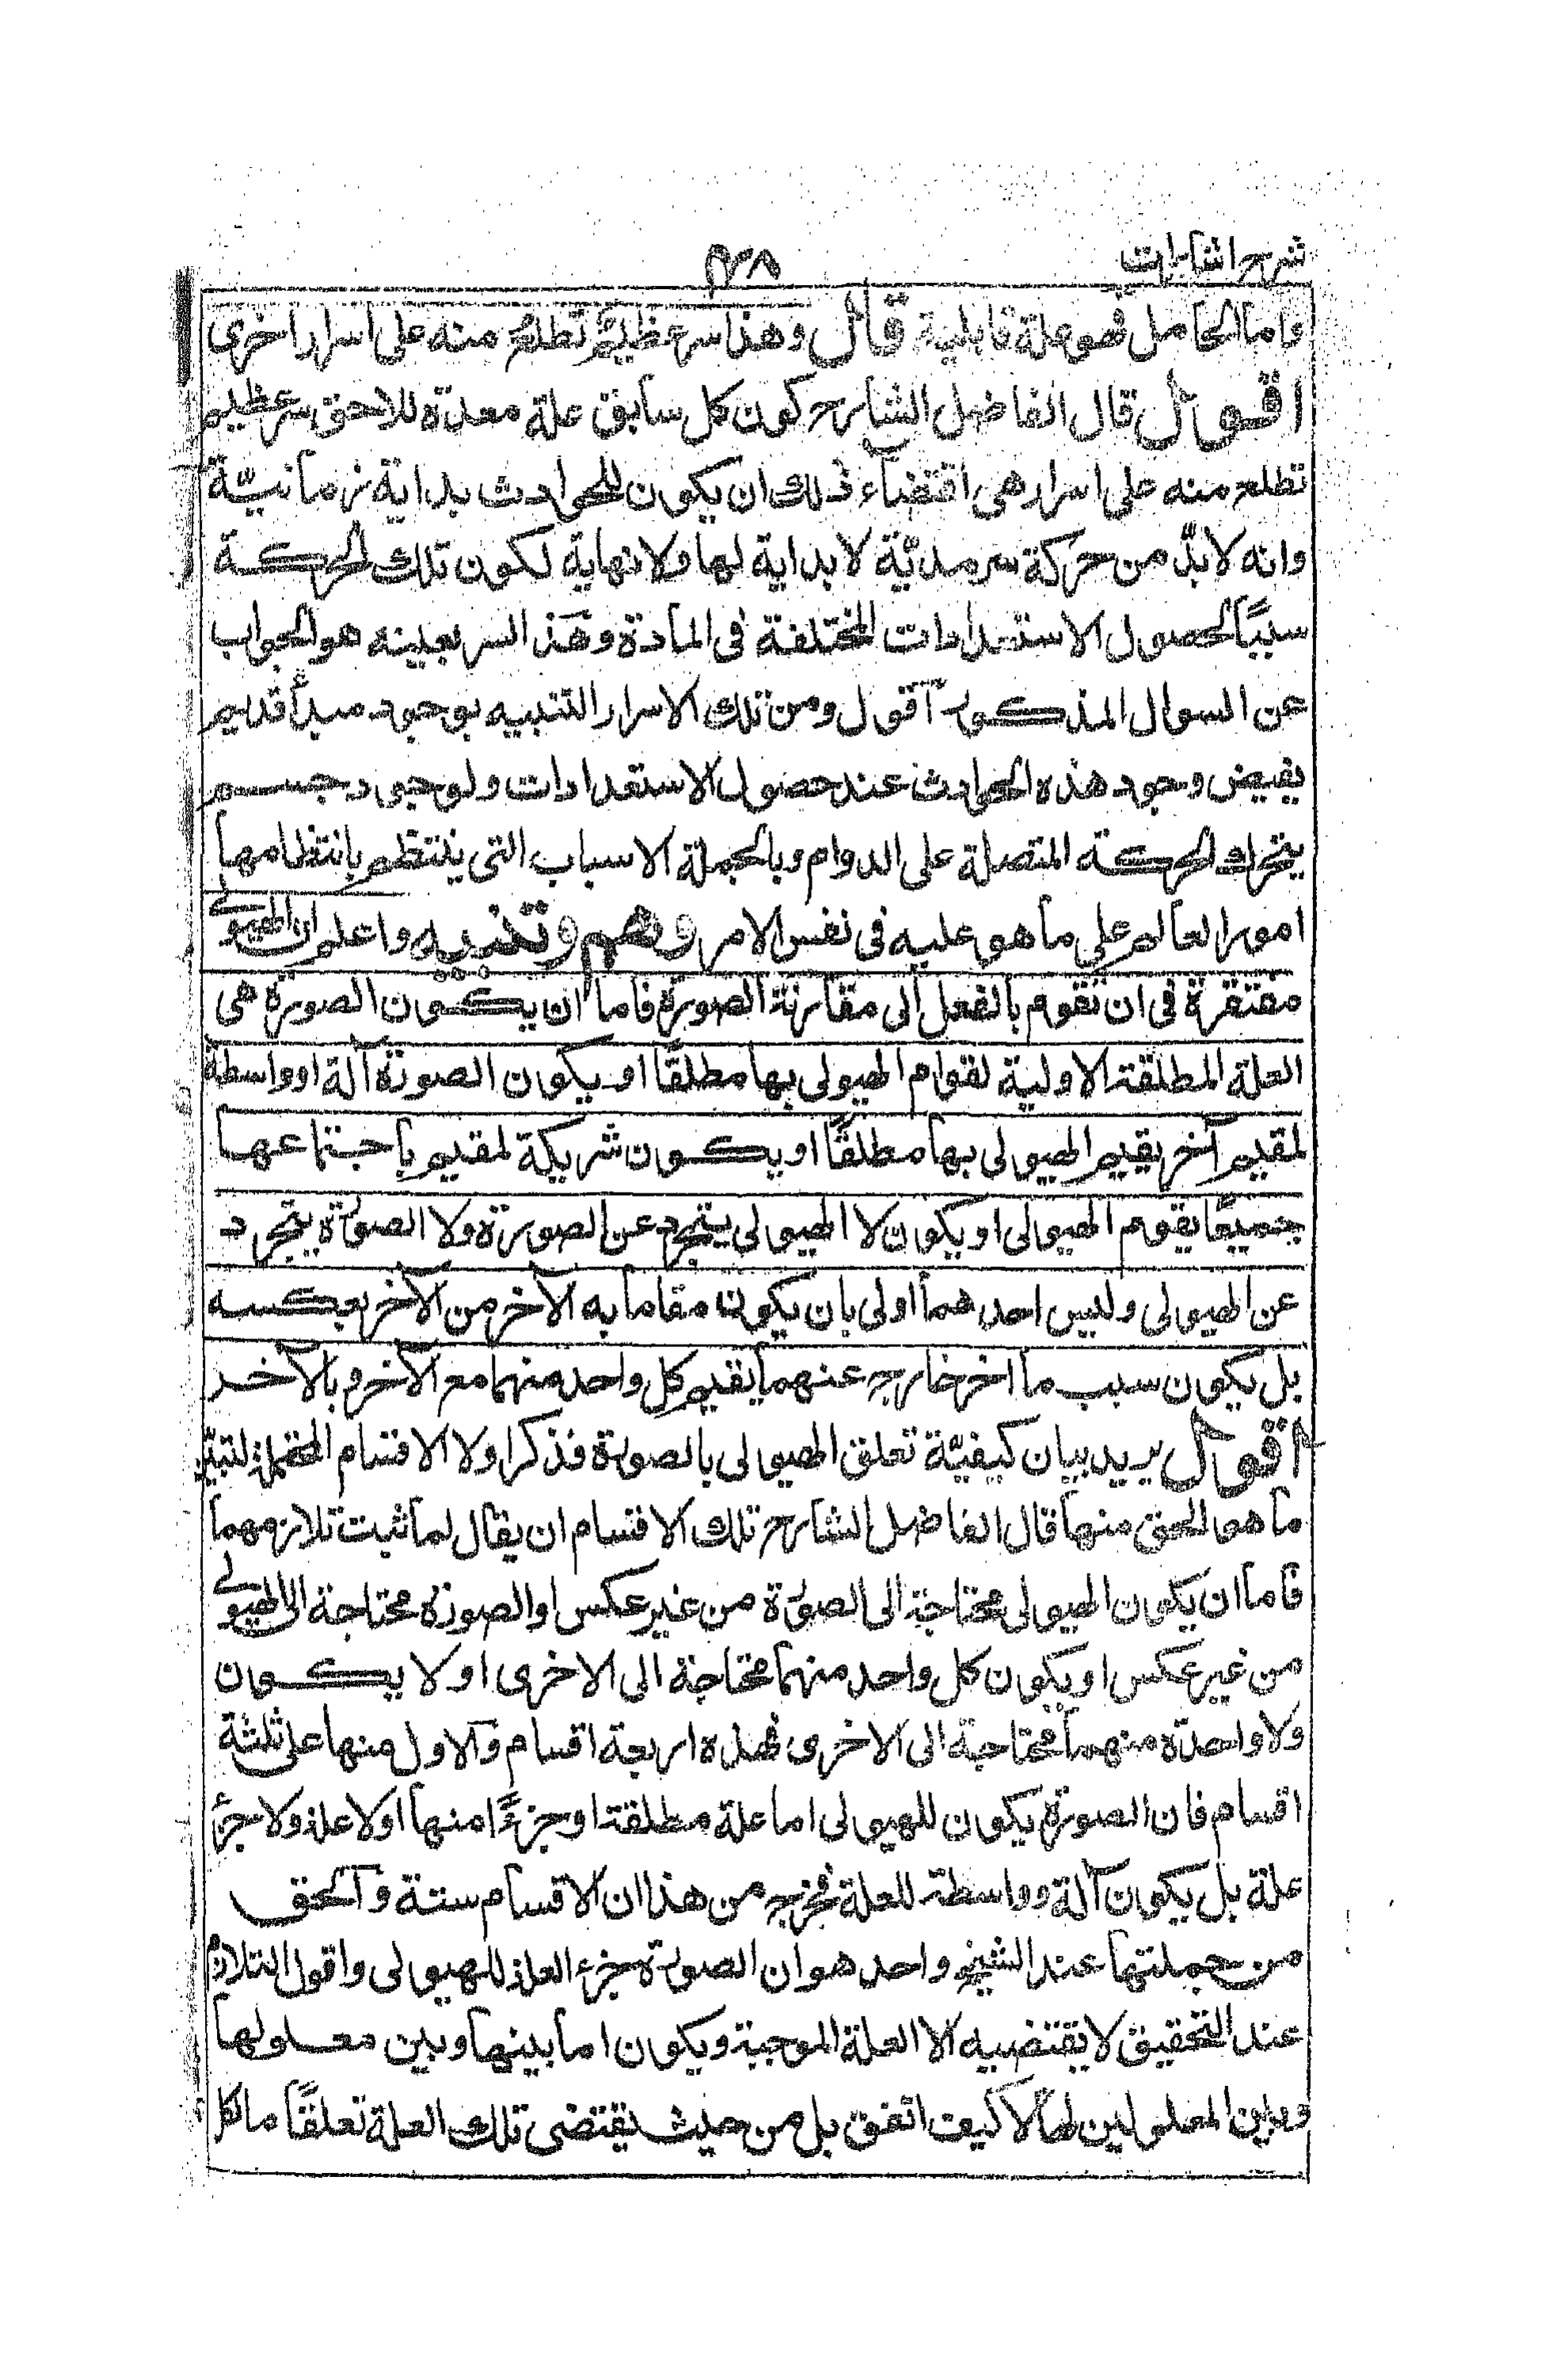 شرح اشارات
٣٨
واما الحامل فهو علة قابلية قال وهذا سر عظيم تطلع منه على اسرار اخرى
اقول قال الفاضل الشارح كون كل سابق علة معدة للاحق سر عظيم
تطلع منه على اسرار هى اقتضاء ذلك ان يكون للحوادث بداية زمانيّة
وانه لابدّ من حركة سرمديّة لا بداية لها ولا نهاية لكون تلك الحركة
سببًا لحصول الاستعدادات المختلفة فى المادة وهذا السر بعينه هو الجواب
عن السوال المذكور آقول ومن تلك الاسرار التنبيه بوجود مبدأ قديم
يفيض وجود هذه الحوادث عند حصول الاستعدادات ولوجود جسم
يتحرك الحركة المتصلة على الدوام وبالجملة الاسباب التى ينتظم بانتظامها
امور العالم على ما هو عليه فى نفس الامر وهم وتنبيه واعلم ان الهيولى
مفتقرة فى ان تقوم بالفعل الى مقارنة الصورة فاما ان يكون الصورة هى
العلة المطلقة الاولية لقوام الهيولى بها مطلقًا او يكون الصورة آلة او واسطة
لمقيم آخر يقيم الهيولى بها مطلقًا او يكون شريكة لمقيم باجتماعها
جميعًا يقوم الهيولى او يكون لا الهيولى يتجرد عن الصورة ولا الصورة يتجرد
عن الهيولى وليس احدهما اولى بان يكون مقاما به الآخر من الآخر بعكسه
بل يكون سبب ما اخر خارج عنهما يقيم كل واحد منهما مع الآخر و بالآخر
اقول يريد بيان كيفيّة تعلق الهيولى بالصورة فذكر اولا الاقسام المحتملة لتبيّن
ما هو الحق منها قال الفاضل الشارح تلك الاقسام ان يقال لما ثبت تلازمهما
فاما ان يكون الهيولى محتاجة الى الصورة من غير عكس او الصورة محتاجة الى الهيولى
من غير عكس او يكون كل واحد منهما محتاجة الى الاخرى او لا يكون
ولا واحدة منهما محتاجة الى الاخرى فهذه اربعة اقسام والاول منها على ثلثة
اقسام فان الصورة يكون للهيولى اما علة مطلقة او جزءًا منها او لا علة ولا جزءَ
علة بل يكون آلة وواسطة للعلة فخرج من هذا ان الاقسام ستة وآلحق
من جملتها عند الشيخ واحد هو ان الصورة جزء العلة للهيولى واقول التلازم
عند التحقيق لا يقتضيه الا العلة الموجبة ويكون اما بينها وبين معلولها
وبين المعلولين لها لا كيف اتفق بل من حيث يقتضى تلك العلة تعلقًا ما لكل